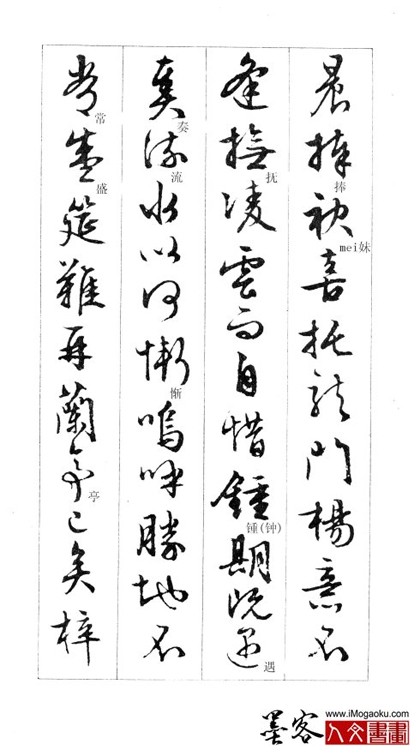 晨捧袂喜托龍門楊意不
捧
mei妹
逢撫凌雲而自惜鍾期既遇
抚
锺(钟)
遇
奏流水以何慚嗚呼勝地不
奏
流
惭
常盛筵難再蘭亭已矣梓
常
盛
亭
墨客
www.iMogaoku.com
人文書畫